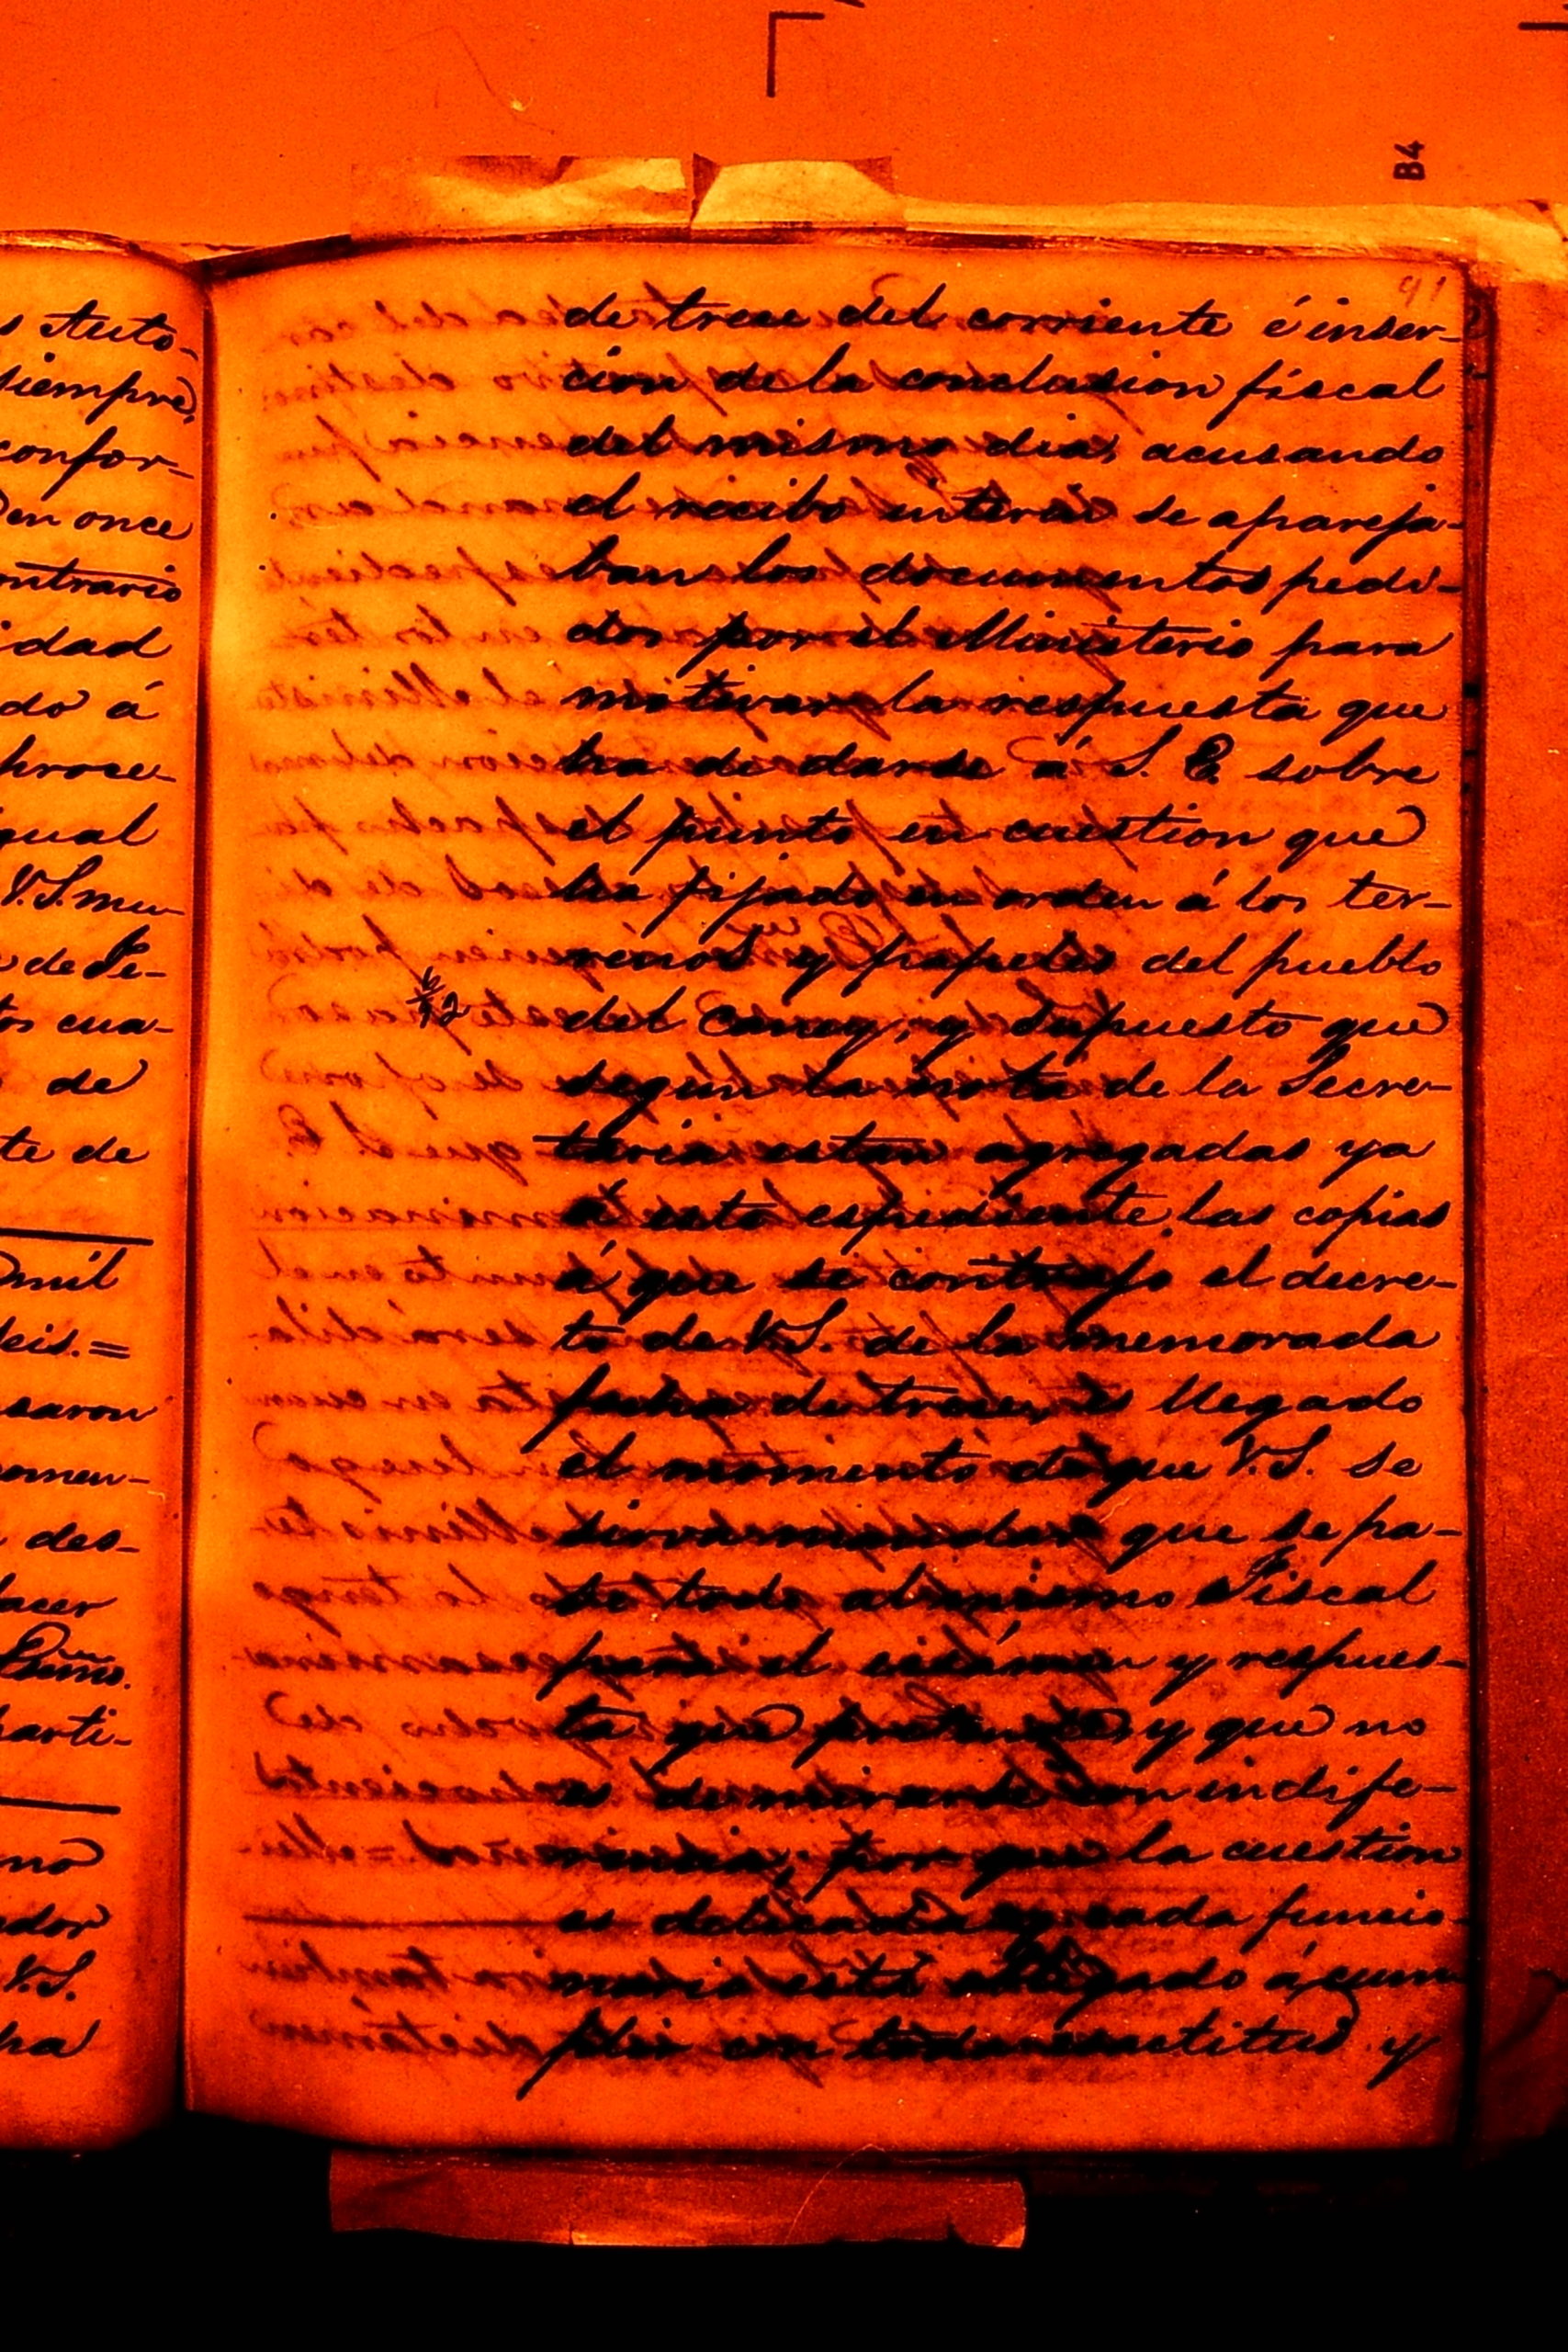 B4
91
s Auto-
siempre,
confor-
en once
ontrario
idad
do á
proce-
gual
V.S. mu-
de Pe-
tos cua-
de
te de
mil
seis.=
saron
omen-
des-
acer
Exmo.
parti-
no
ador
V.S.
ha
de trece del corriente é inser-
cion de la conclusion fiscal
del mismo dia, acusando
el recibo interin se apareja-
ban los documentos pedi-
dos por el Ministerio para
motivar la respuesta que
ha de darse á S. E. sobre
el punto en cuestion que
ha fijado en orden á los ter-
renos y papeles del pueblo
del Caney, y supuesto que
según la nota de la Secre-
taria estan agregadas ya
á este espediente, las copias
á que se contrajo el decre-
to de V.S. de la memorada
fecha de trece, es llegado
el momento de que V.S. se
sirva mandar que se pa-
se todo al mismo Fiscal
para el exámen y respues-
ta que pretende, y que no
es de mirarse con indife-
rencia, por que la cuestion
es delicada y cada funcio-
nario está obligado á cum-
plir con toda exactitud y